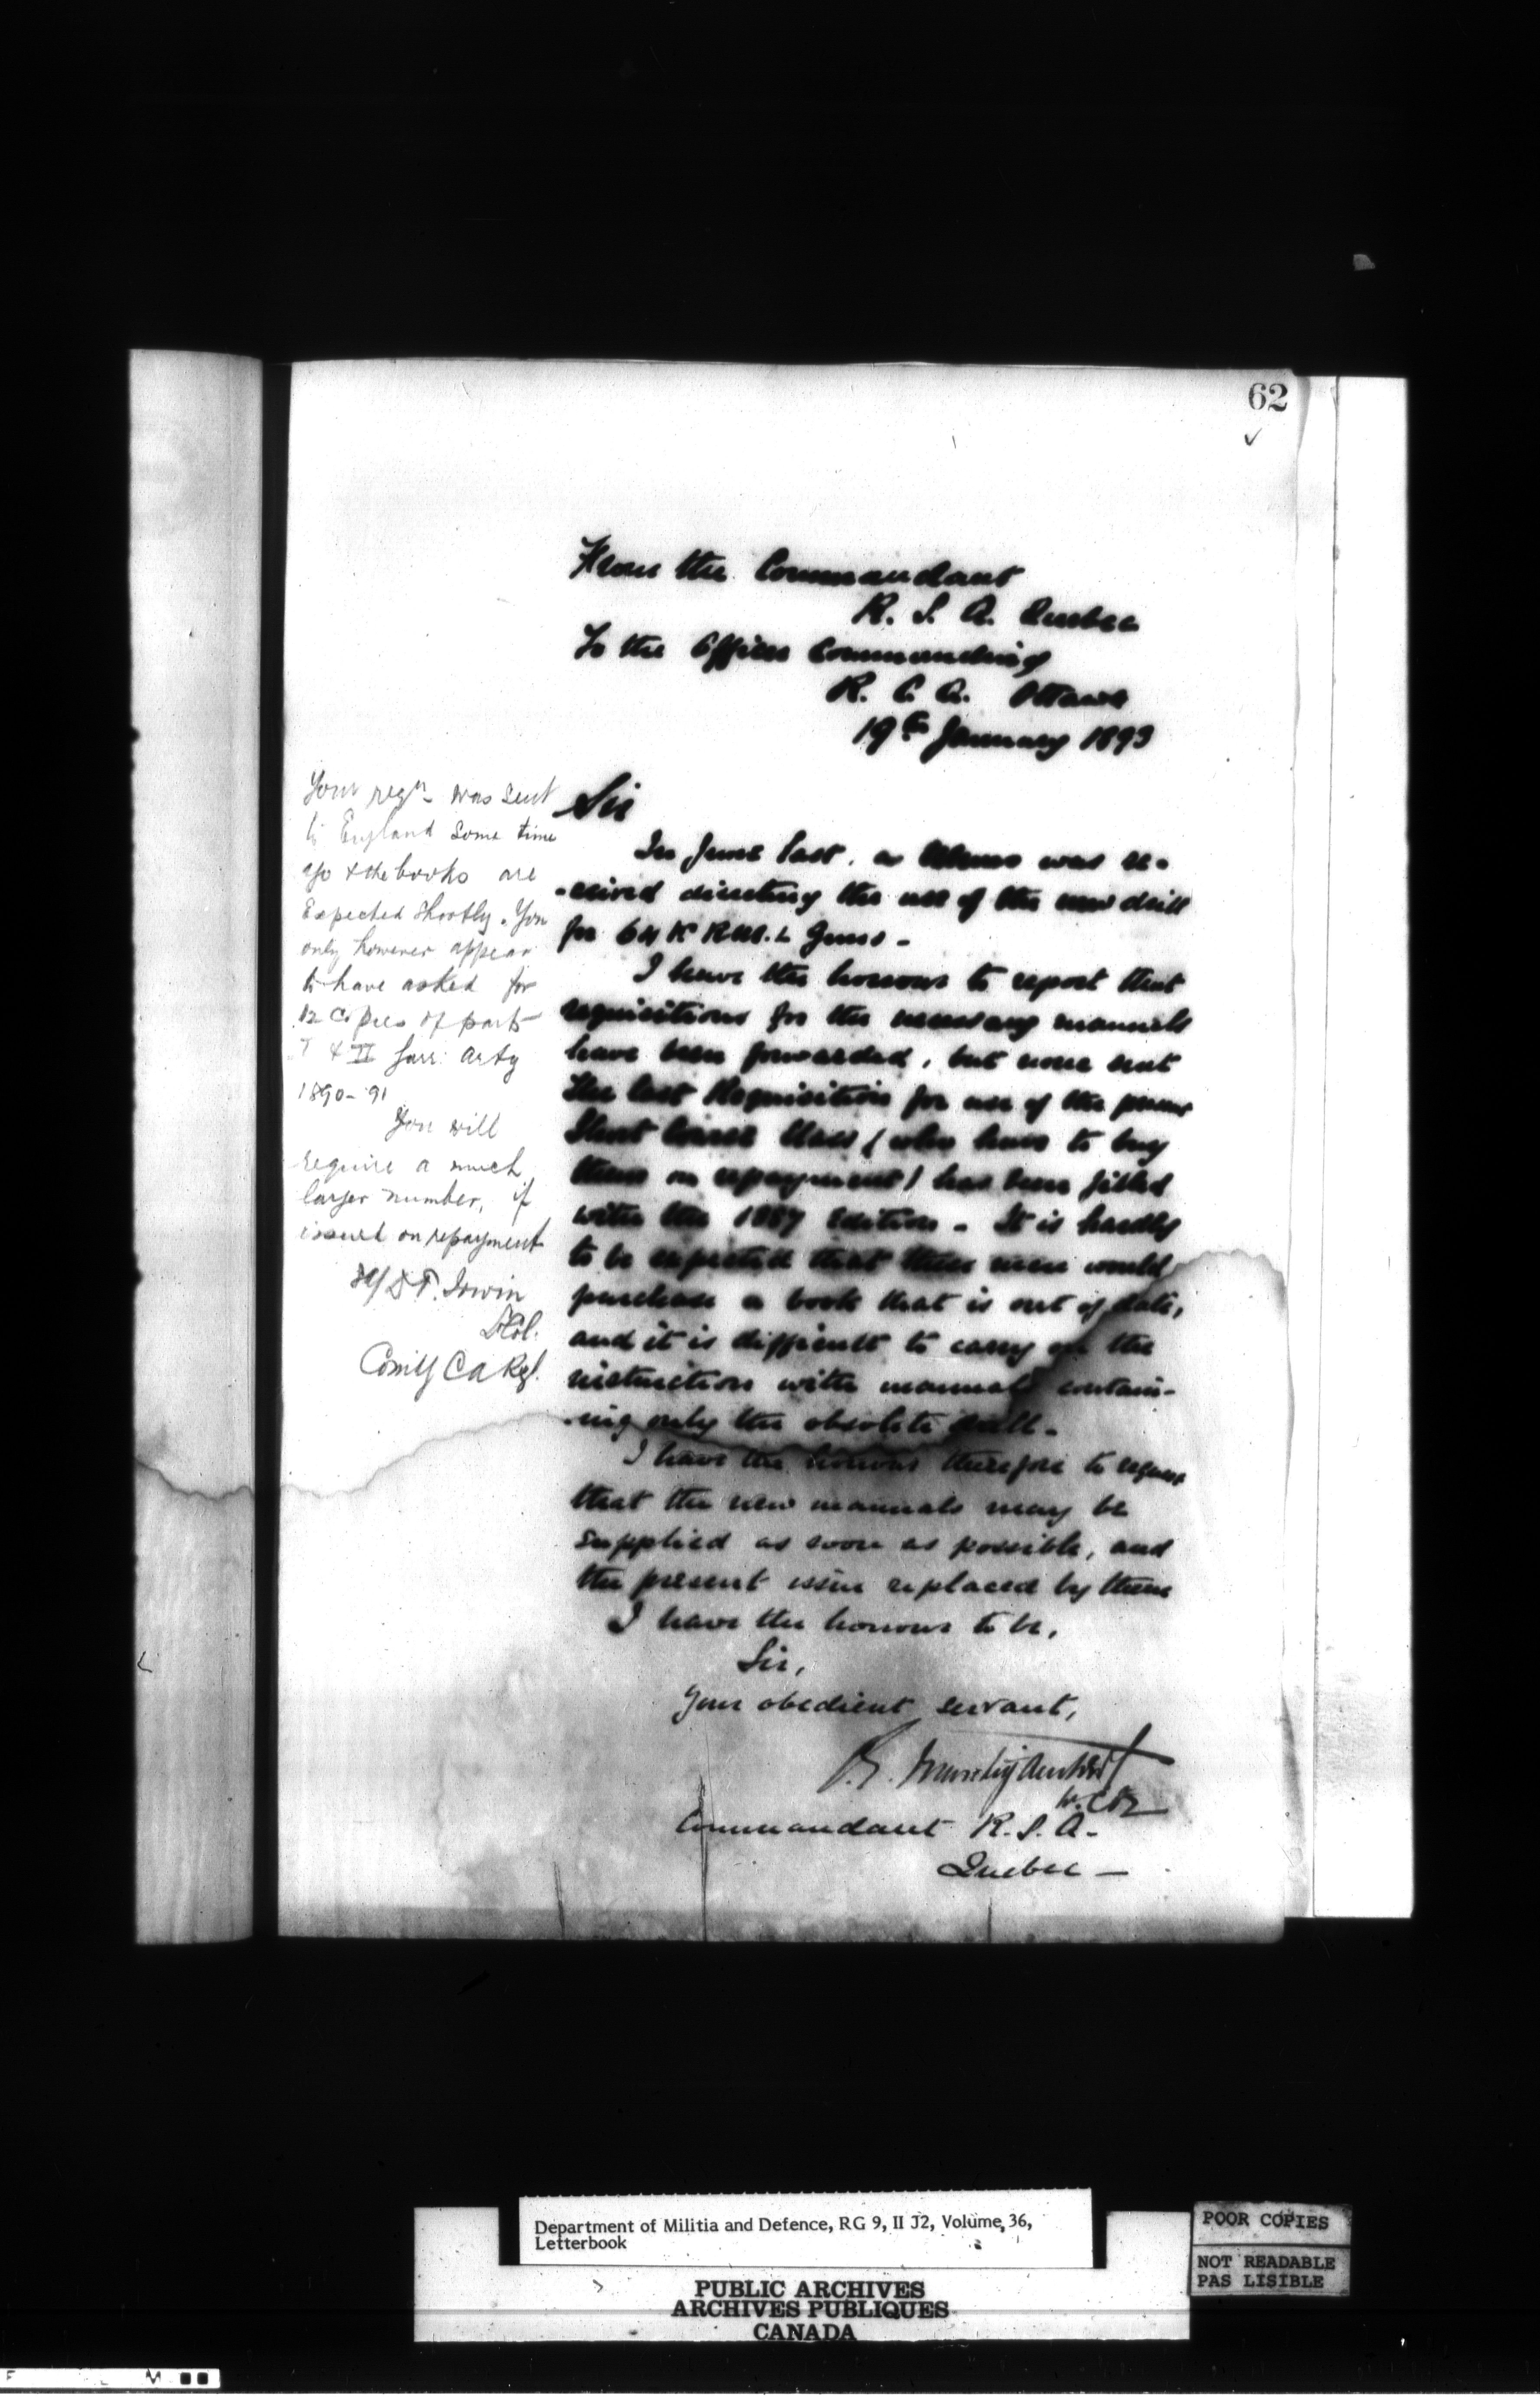 62
From the Commandant
R. S. A. Quebec
To the Officer Commanding
R. C. A. Ottawa
19th January 1893
Sir
In June last, a Memo was re-
-ceived directing the use of the new drill
for 64 Pr R.M.L Guns -
I have the honour to report that
requisitions for the necessary manuals
have been forwarded, but none sent
The last Requisition for use of the present
Short Course Class (who have to buy
them on repayment) has been filled
with the 1887 Edition - It is hardly
to be expected that these men would
purchase a book that is out of date,
and it is difficult to carry on the
instruction with manual contain-
-ing only the obsolete drill -
I have the honour therefore to request
that the new manuals may be
supplied as soon as possible, and
the present issue replaced by them
I have the honour to be,
Sir,
Your obedient servant,
Commandant R. S. A -
Quebec -
Your reqn. was sent
to England some time
ago & the books are
Expected shortly. You
only however appear
to have asked for
12 Copies of part
I & II Garr: Arty
1890-91
You will
require a much
larger number, if
issued on repayment
D T. Irwin
Lt Col.
C A Regt.
Department of Militia and Defence, RG 9, II J2, Volume, 36,
Letterbook
PUBLIC ARCHIVES
ARCHIVES PUBLIQUES
CANADA
POOR COPIES
NOT READABLE
PAS LISIBLE